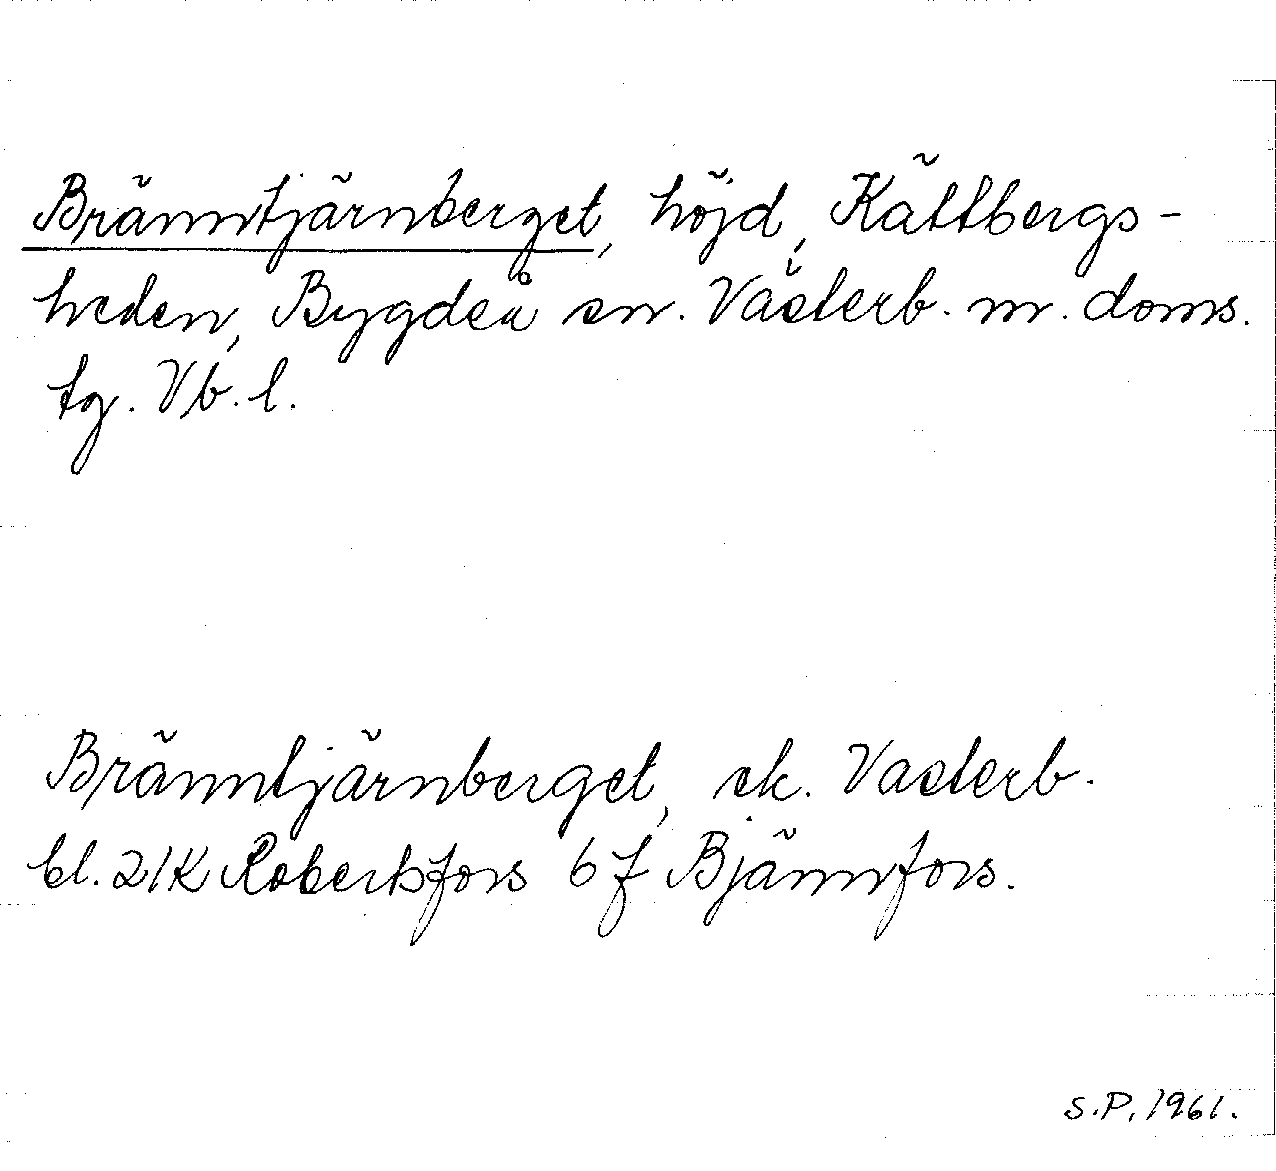 Bränntjärnberget, höjd, Kättbergs-
heden, Bygdeå sn. Västerb. m. doms.
tg. Vb. l.
Bränntjärnberget, ek. Vasterb.
bl. 21K Robertsfors 6 f Bjännfors.
S.P. 1961.